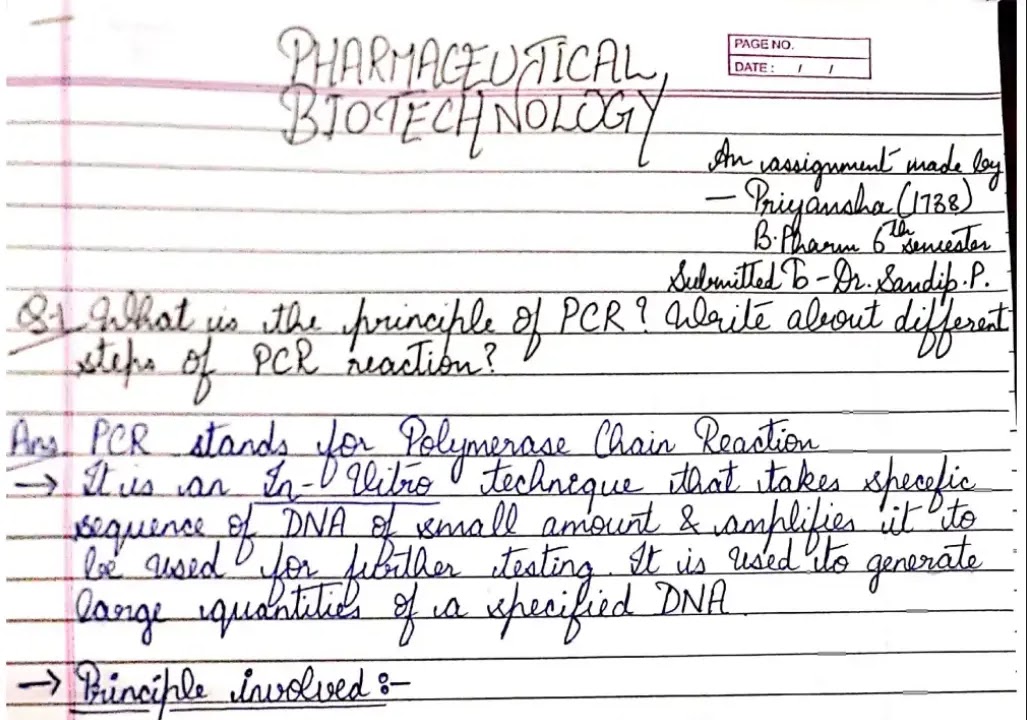 PHARMACEUTICAL
BIOTECHNOLOGY
PAGE NO.
DATE: / /
An assignment made by
- Priyansha (1738)
B.Pharm 6th semester
Submitted To - Dr. Sandip. P.
Q.1 What is the principle of PCR? Write about different
steps of PCR reaction?
Ans PCR stands for Polymerase Chain Reaction
→ It is an In-Vitro technique that takes specific
sequence of DNA of small amount & amplifies it to
be used for further testing. It is used to generate
large quantities of a specified DNA
→ Principle involved :-